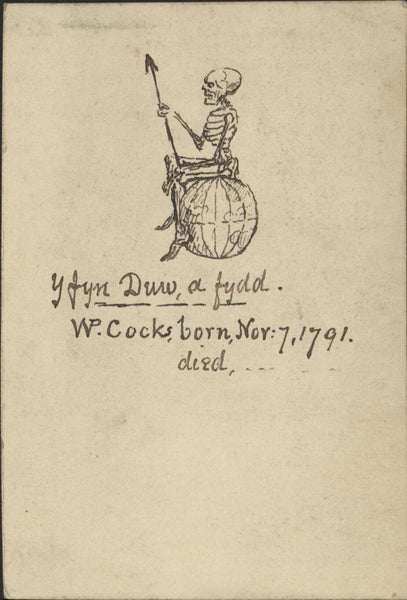 Y fyn Duw, a fydd.
Wm. Cocks, born, Nov: 7, 1791.
died, .. - - - -